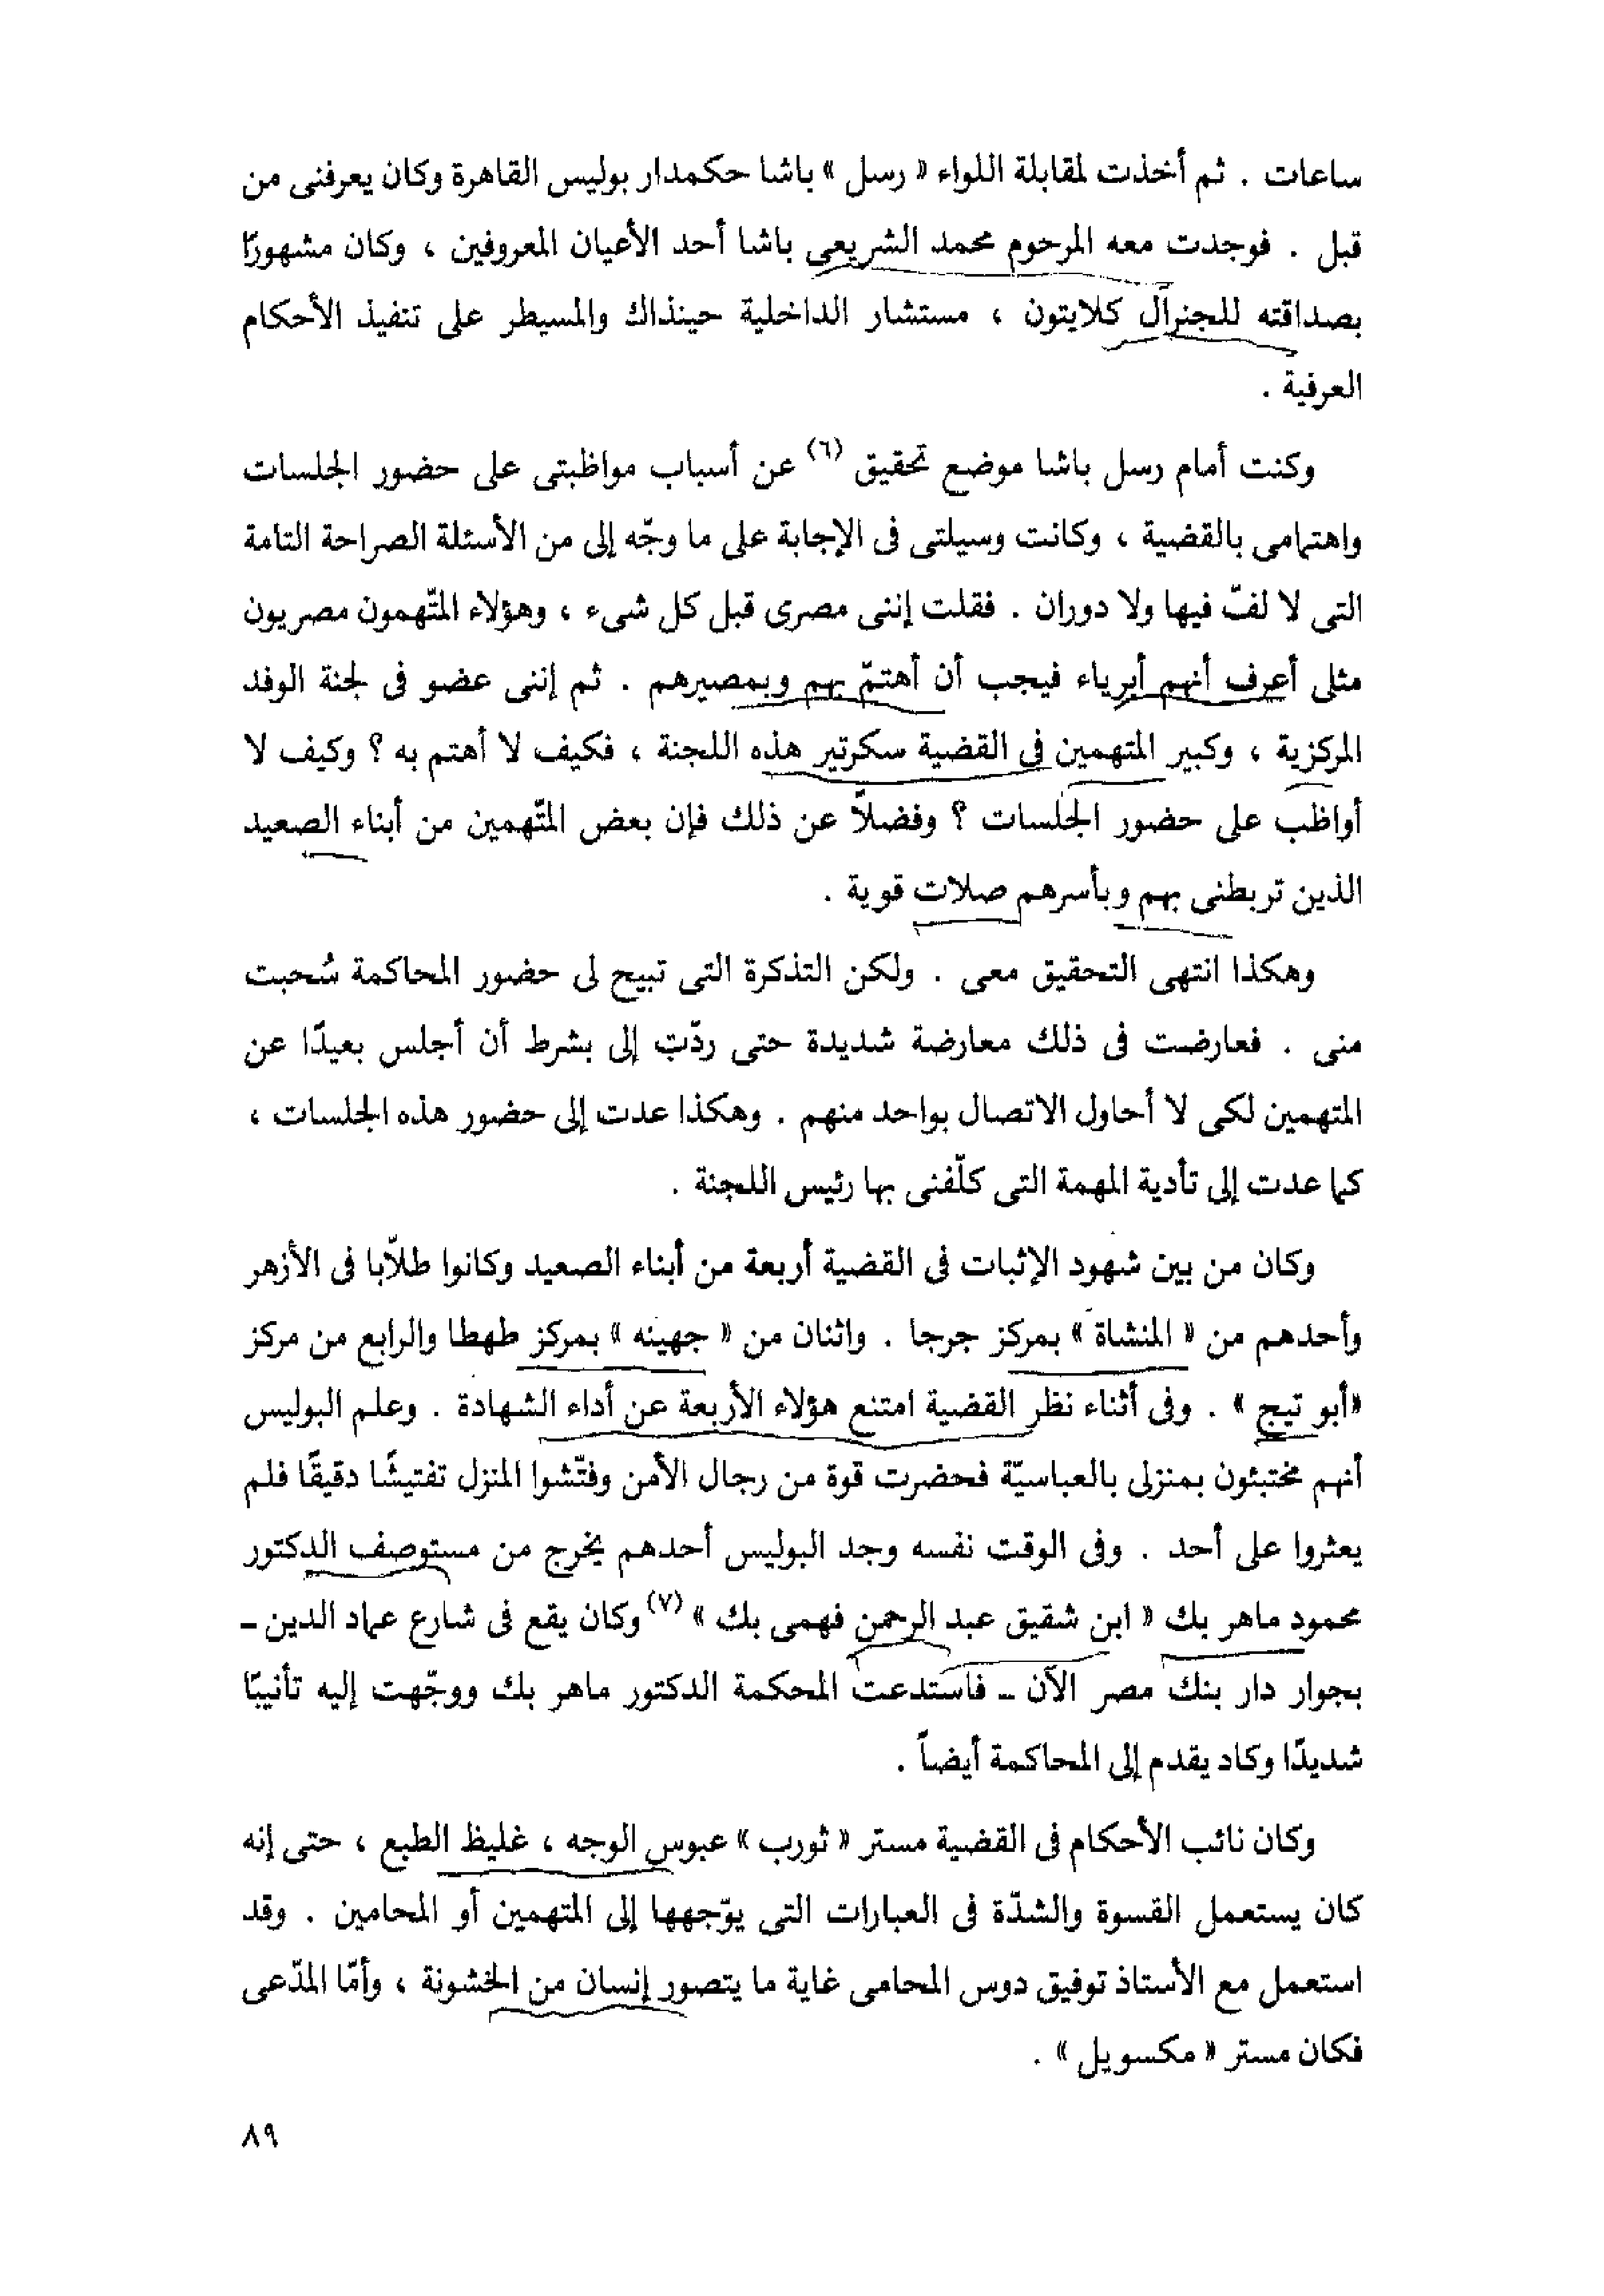 ساعات . ثم أخذت لمقابلة اللواء « رسل » باشا حكمدار بوليس القاهرة وكان يعرفنى من
قبل . فوجدت معه المرحوم محمد الشريعى باشا أحد الأعيان المعروفين ، وكان مشهورًا
بصداقته للجنرال كلايتون ، مستشار الداخلية حينذاك والمسيطر على تنفيذ الأحكام
العرفية .
وكنت أمام رسل باشا موضع تحقيق (٦) عن أسباب مواظبتى على حضور الجلسات
واهتمامى بالقضية ، وكانت وسيلتى فى الإجابة على ما وجّه إلى من الأسئلة الصراحة التامة
التى لا لفّ فيها ولا دوران . فقلت إننى مصرى قبل كل شىء ، وهؤلاء المتّهمون مصريون
مثلى أعرف أنهم أبرياء فيجب أن أهتمّ بهم وبمصيرهم . ثم إننى عضو فى لجنة الوفد
المركزية ، وكبير المتهمين فى القضية سكرتير هذه اللجنة ، فكيف لا أهتم به ؟ وكيف لا
أواظب على حضور الجلسات ؟ وفضلاً عن ذلك فإن بعض المتّهمين من أبناء الصعيد
الذين تربطنى بهم وبأسرهم صلات قوية .
وهكذا انتهى التحقيق معى . ولكن التذكرة التى تبيح لى حضور المحاكمة سُحبت
منى . فعارضت فى ذلك معارضة شديدة حتى ردّت إلى بشرط أن أجلس بعيدًا عن
المتهمين لكى لا أحاول الاتصال بواحد منهم . وهكذا عدت إلى حضور هذه الجلسات ،
كما عدت إلى تأدية المهمة التى كلّفنى بها رئيس اللجنة .
وكان من بين شهود الإثبات فى القضية أربعة من أبناء الصعيد وكانوا طلاّبا فى الأزهر
وأحدهم من « المنشاة » بمركز جرجا . واثنان من « جهينه » بمركز طهطا والرابع من مركز
«أبو تيج » . وفى أثناء نظر القضية امتنع هؤلاء الأربعة عن أداء الشهادة . وعلم البوليس
أنهم مختبئون بمنزلى بالعباسيّة فحضرت قوة من رجال الأمن وفتّشوا المنزل تفتيشًا دقيقًا فلم
يعثروا على أحد . وفى الوقت نفسه وجد البوليس أحدهم يخرج من مستوصف الدكتور
محمود ماهر بك « ابن شقيق عبد الرحمن فهمى بك » (٧) وكان يقع فى شارع عماد الدين ــ
بجوار دار بنك مصر الآن ــ فاستدعت المحكمة الدكتور ماهر بك ووجّهت إليه تأنيبًا
شديدًا وكاد يقدم إلى المحاكمة أيضاً .
وكان نائب الأحكام فى القضية مستر « ثورب » عبوس الوجه ، غليظ الطبع ، حتى إنه
كان يستعمل القسوة والشدّة فى العبارات التى يوّجهها إلى المتهمين أو المحامين . وقد
استعمل مع الأستاذ توفيق دوس المحامى غاية ما يتصور إنسان من الخشونة ، وأمّا المدّعى
فكان مستر « مكسويل » .
٨٩